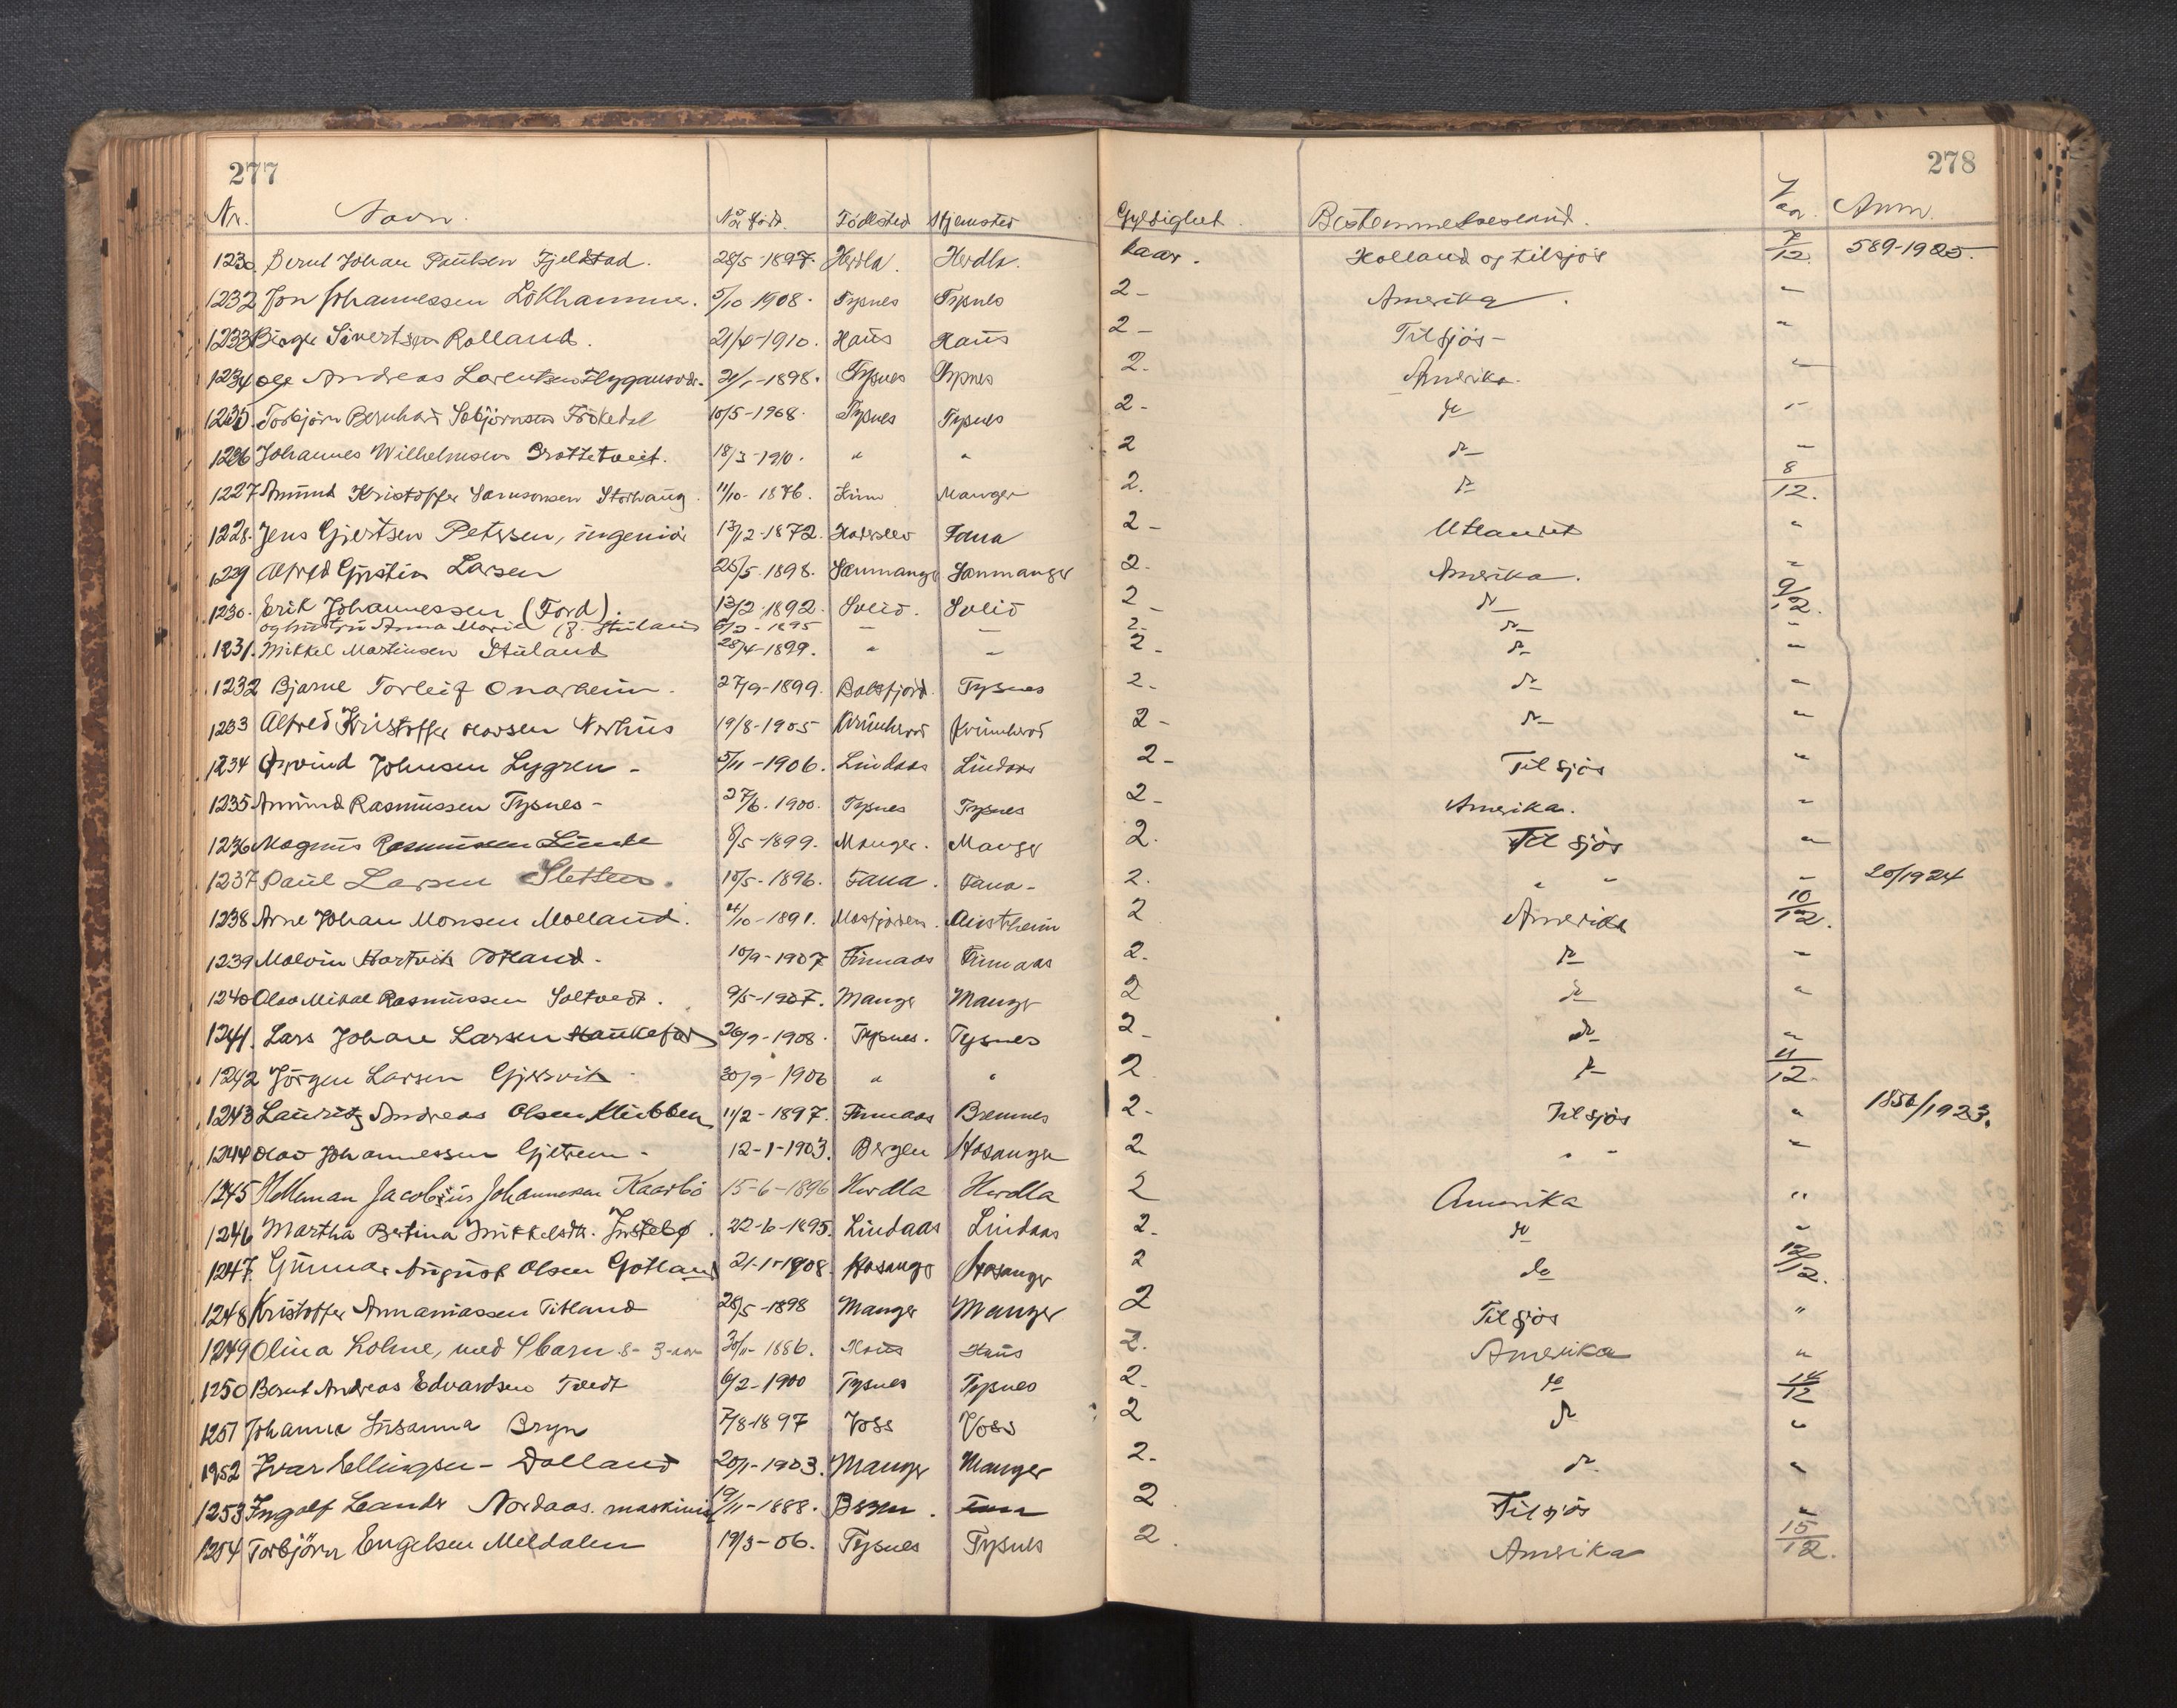 277 278
Nr. Navn. Når född. Födested Hjemsted Gyldighet. Bestemmelsesland. Naar. Anm.
1230. Bernt Johan Paulsen Fjeldstad. 28/5-1897. Herdla. Herdla. 2 aar. Holland og tilsjös 7/12. 589-1925.
1232 Jon Johannessen Lökhammer. 5/10-1908. Tysnes Tysnes 2- Amerika. "
1233 Birger Sivertsen Rolland. 21/4-1910. Haus Haus 2- Tilsjös- "
1234 Ole Andreas Larentsen 21/1-1898. Tysnes Tysnes 2. Amerika. "
1235. Torbjörn Bernhard Frökedal 10/5-1908. Tysnes Tysnes 2- do "
1236 Johannes Wilhelmsen Brattetveit. 18/3-1910. " " 2 do "
1227 Amund Kristoffer Samsonsen Storhaug. 11/10-1876. Kinn Manger 2. do 8/12.
1228. Jens Gjertsen Petersen, ingeniör 13/12-1872. Haderslev Fana 2- Utlandet "
1229 Alfred Larsen 25/5-1898. Samnanger Samnanger 2. Amerika. "
1230. Erik Johannessen (Ford). 13/2-1892. Solid. Solid 2- do 9/12.
og hustru Anna Maria f. Stuland 1895 - - 2- do "
1231. Mikkel Martinsen Stuland 28/4-1899. " - 2- do "
1232 Bjarne Torleif Onarheim. 27/9-1899. Balsfjord. Tysnes 2- do "
1233 Alfred Kristoffer Olavsen Nerhus 19/8-1905 Kvinnherad Kvinnherad 2- do "
1234 Øyvind Johnsen Lygren - 5/11-1906. Lindaas Lindaas 2- Til sjös "
1235 Amund Rasmussen Tysnes - 27/6-1900. Tysnes Tysnes 2- Amerika. "
1236 Magnus Rasmussen Linde 8/5-1899. Manger. Manger 2. Til sjös "
1237 Paul Larsen Sletten. 10/5-1896. Fana. Fana- 2. " " " 20/1924
1238 Arne Johan Monsen Molland. 4/10-1891. Masfjorden. Austrheim 2 Amerika 10/12.
1239 Malvin Hartvik Totland. 10/9-1907 Finnaas Finnaas 2. do "
1240 Olav Mikal Rasmussen Soltvedt. 9/5-1907. Manger Manger 2 do "
1241. Lars Johan Larsen Haukefær 26/9-1908. Tysnes. Tysnes 2- do "
1242 Jörgen Larsen Gjersvik 30/9-1906 " " 2 do 11/12.
1243 Lauritz Andreas Olsen Klubben 11/2-1897. Finnaas Bremnes 2- Tilsjös " 1850/1923.
1244 Olav Johannessen Gjetrem - 12-1-1903. Bergen Hosanger 2 " " "
1245 Halleman Jacobsius Johannesen Kaarbö 15-6-1896 Herdla Herdla 2 Amerika "
1246 Martha Bertina Mikkelsdtr. Instebø. 22-6-1895. Lindaas Lindaas 2- do "
1247. Gunnar August Olsen Gotland 21-1-1908. Hosanger Hosanger 2 do 12/12.
1248 Kristoffer Annaniassen Titland 28/5-1898 Manger Manger 2 Til sjös "
1249 Olina Lohne, med 4 barn 8- 3-aar 30/11-1886. Haus Haus 2. Amerika "
1250 Bernt Andreas Edvardsen Tvedt 6/2-1900 Tysnes Tysnes 2- do 14/12
1251 Johanna Susanna Bryn 7/8-1897 Voss Voss 2 do "
1252 Ivar Ellingsen - Dalland 20/1-1903. Manger Manger 2- do. "
1253 Ingolf Leander Nordaas. maskinist 19/11-1888. Bergen. 2 Tilsjös "
1254 Torbjörn Engelsen Meldalen 19/3-06. Tysnes Tysnes 2. Amerika 15/12.